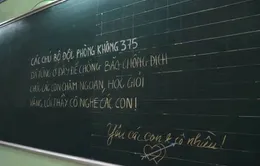 CÁC CHÚ BỘ ĐỘI PHÒNG KHÔNG 375
ĐÃ TỪNG Ở ĐÂY ĐỂ CHỐNG BÃO CHỐNG DỊCH
CHÚC CÁC CON CHĂM NGOAN, HỌC GIỎI
VÂNG LỜI THẦY CÔ NGHE CÁC CON!
Yêu các con nhiều!